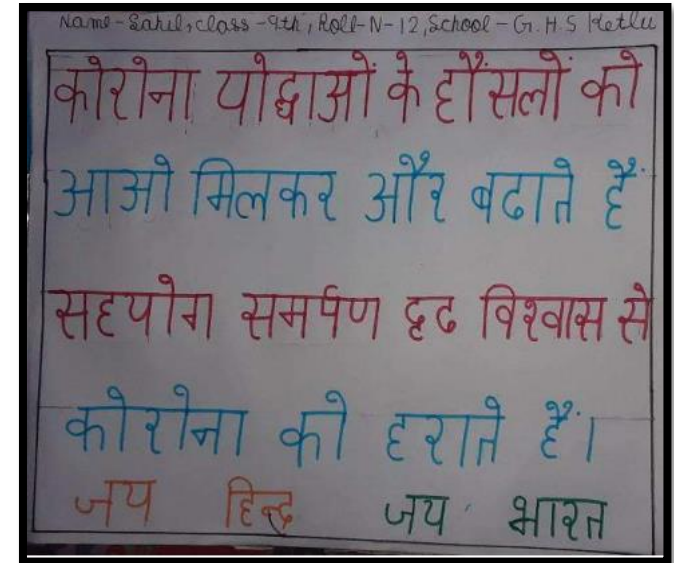 Name - Sahil, class - 9th, Roll-N-12, School - G.H.S Ketlu
कोरोना योद्धाओं के हौंसलों को
आओ मिलकर और बढाते हैं
सहयोग समर्पण दृढ विश्वास से
कोरोना को हराते हैं।
जय हिन्द जय भारत